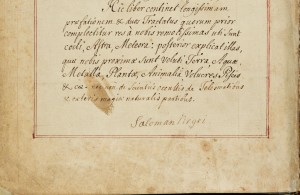 Hic liber continet longissimam
præfationem & duos Tractatus quorum prior
complectitur res à nobis remotissimas uti Sunt
cœli, Astra, Meteora: posterior explicat illas,
quæ nobis proximæ Sunt veluti Terra Aquæ
Metalla, Plantæ, Animalia Volucres Pisces
&c, non de Scientiis occultis de
& cæteris magiæ naturalis partibus.
Saloman Negri